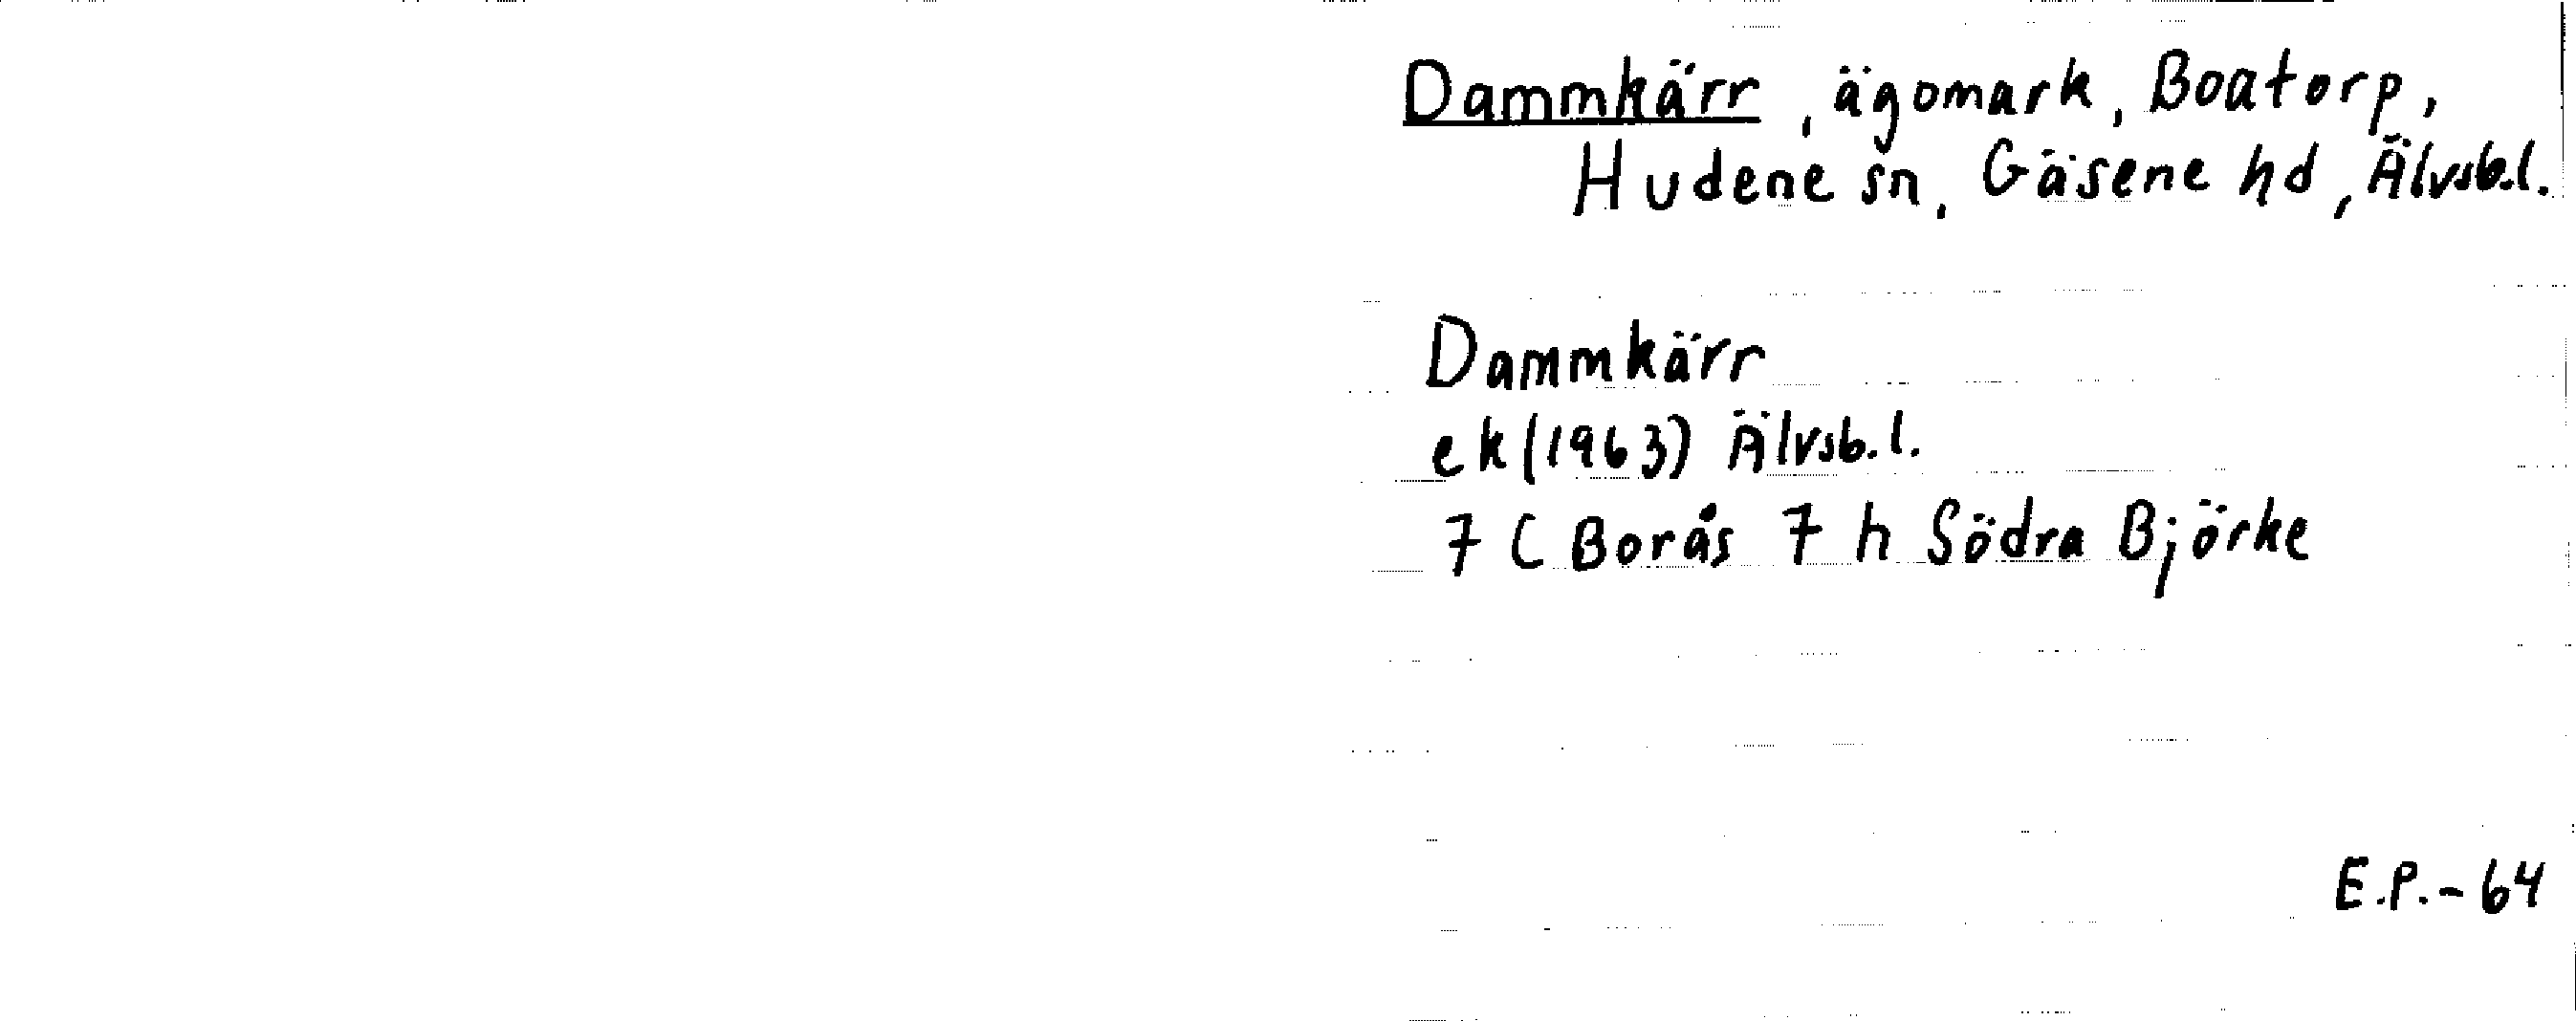 Dammkärr, ägomark, Boatorp,
Hudene sn, Gäsene hd, Älvsb.l.
Dammkärr
ek (1963) Älvsb.l.
7 C Borås 7 h Södra Björke
E.P.-64